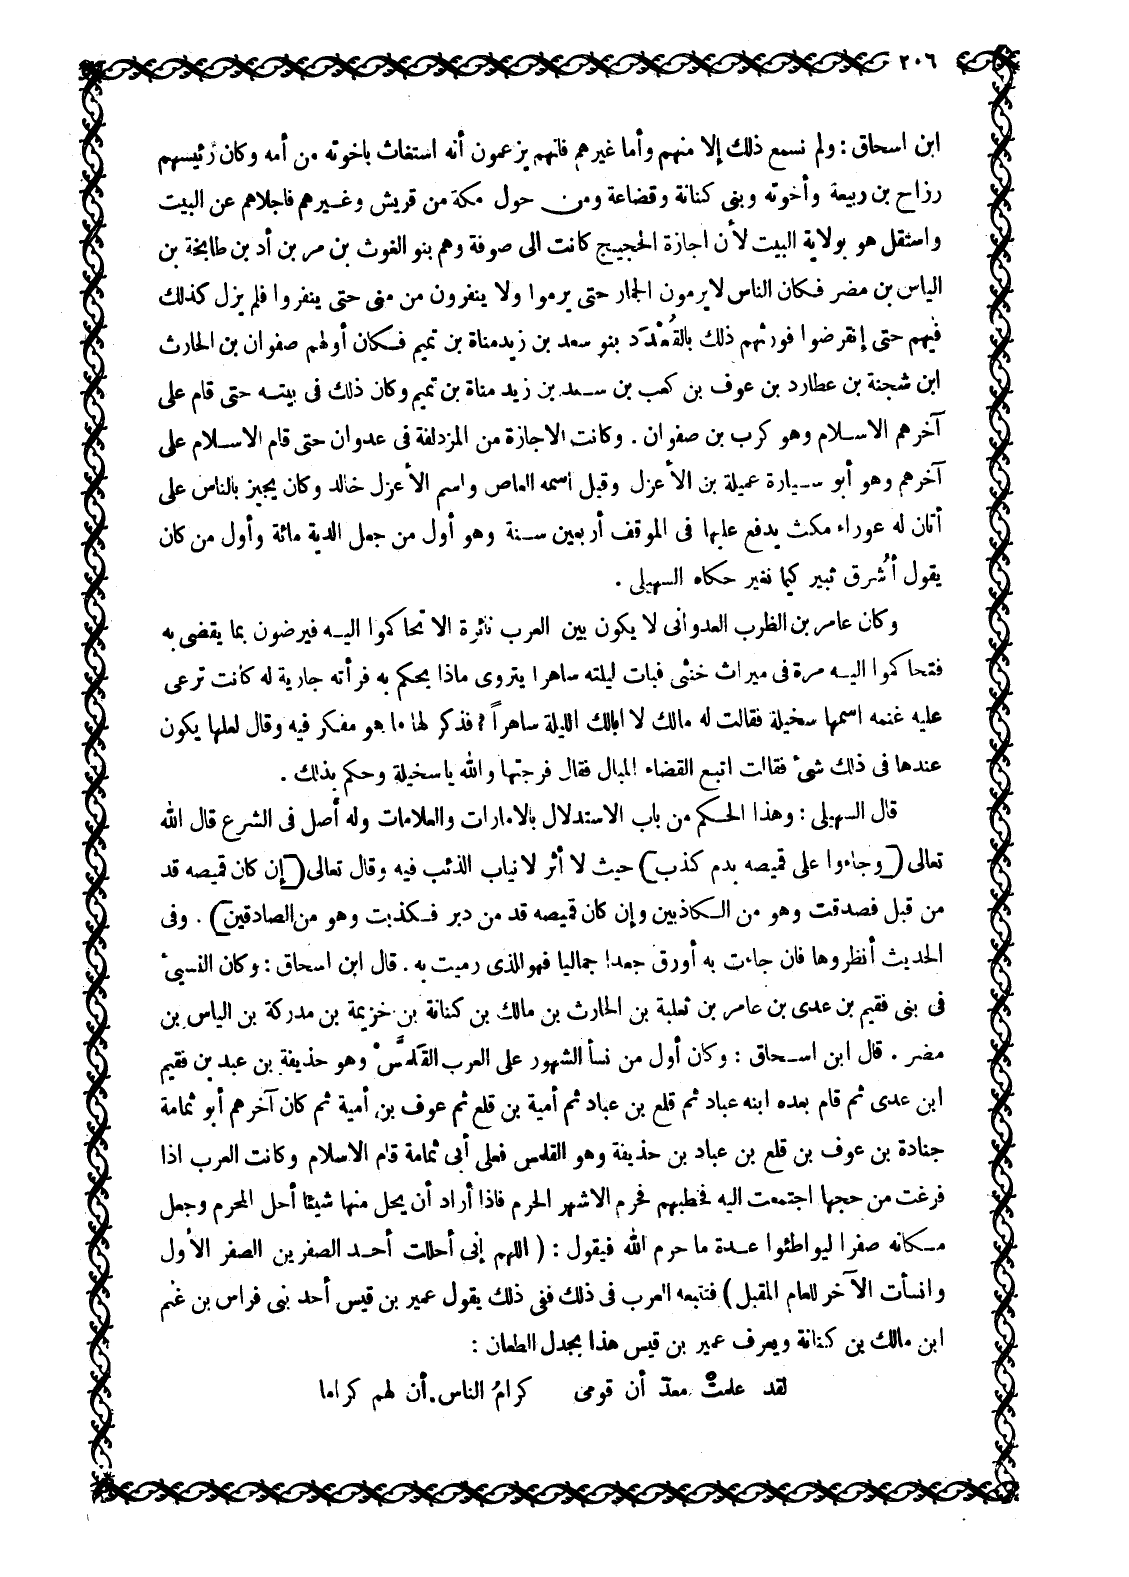 ٢٠٦
ابن اسحاق : ولم نسمع ذلك إلا منهم وأما غيرهم فانهم يزعمون أنه استغاث باخوته من أمه وكان رئيسهم
رزاح بن ربيعة وأخوته وبنى كنانة وقضاعة ومن حول مكة من قريش وغيرهم فاجلاهم عن البيت
واستقل هو بولاية البيت لأن اجازة الحجيج كانت الى صوفة وهم بنو الغوث بن مر بن أد بن طابخة بن
الياس بن مضر فكان الناس لا يرمون الجمار حتى يرموا ولا ينفرون من منى حتى ينفروا فلم يزل كذلك
فيهم حتى إنقرضوا فورثهم ذلك بالقُعْدَد بنو سعد بن زيدمناة بن تميم فكان أولهم صفوان بن الحارث
ابن شجنة بن عطارد بن عوف بن كعب بن سعد بن زيد مناة بن تميم وكان ذلك فى بيته حتى قام على
آخرهم الاسلام وهو كرب بن صفوان . وكانت الاجازة من المزدلفة فى عدوان حتى قام الاسلام على
آخرهم وهو أبو سيارة عميلة بن الأعزل وقيل اسمه العاص واسم الأعزل خالد وكان يجيز بالناس على
أتان له عوراء مكث يدفع عليها فى الموقف أربعين سنة وهو أول من جعل الدية مائة وأول من كان
يقول أشرق ثبير كيما نغير حكاه السهيلى .
وكان عامر بن الظرب العدوانى لا يكون بين العرب نائرة الا تحاكموا اليه فيرضون بما يقضى به
فتحاكموا اليه مرة فى ميراث خنثى فبات ليلته ساهرا يتروى ماذا يحكم به فرأته جارية له كانت ترعى
عليه غنمه اسمها سخيلة فقالت له مالك لا ابالك الليلة ساهراً ؟ فذكر لها ما هو مفكر فيه وقال لعلها يكون
عندها فى ذلك شىء فقالت اتبع القضاء المبال فقال فرجتها والله ياسخيلة وحكم بذلك .
قال السهيلى : وهذا الحكم من باب الاستدلال بالامارات والعلامات وله أصل فى الشرع قال الله
تعالى ( وجاءوا على قميصه بدم كذب ) حيث لا أثر لانياب الذئب فيه وقال تعالى ( إن كان قميصه قد
من قبل فصدقت وهو من الكاذبين وإن كان قميصه قد من دبر فكذبت وهو من الصادقين ) . وفى
الحديث أنظروها فان جاءت به أورق جعدا جماليا فهو الذى رميت به . قال ابن اسحاق : وكان النسيء
فى بنى فقيم بن عدى بن عامر بن ثعلبة بن الحارث بن مالك بن كنانة بن خزيمة بن مدركة بن الياس بن
مضر . قال ابن اسحاق : وكان أول من نسأ الشهور على العرب القَلَمَّسْ وهو حذيفة بن عبد بن فقيم
ابن عدى ثم قام بعده ابنه عباد ثم قلع بن عباد ثم أمية بن قلع ثم عوف بن أمية ثم كان آخرهم أبو ثمامة
جنادة بن عوف بن قلع بن عباد بن حذيفة وهو القلمس فعلى أبى ثمامة قام الاسلام وكانت العرب اذا
فرغت من حجها اجتمعت اليه فخطبهم فحرم الاشهر الحرم فاذا أراد أن يحل منها شيئا أحل المحرم وجعل
مكانه صفرا ليواطئوا عدة ما حرم الله فيقول : ( اللهم إنى أحللت أحد الصفرين الصفر الأول
وانسأت الآخر للعام المقبل ) فتتبعه العرب فى ذلك ففى ذلك يقول عمير بن قيس أحد بنى فراس بن غنم
ابن مالك بن كنانة ويعرف عمير بن قيس هذا بجدل الطعان :
لقد علمتْ معدّ أن قومى كرامُ الناس أن لهم كراما